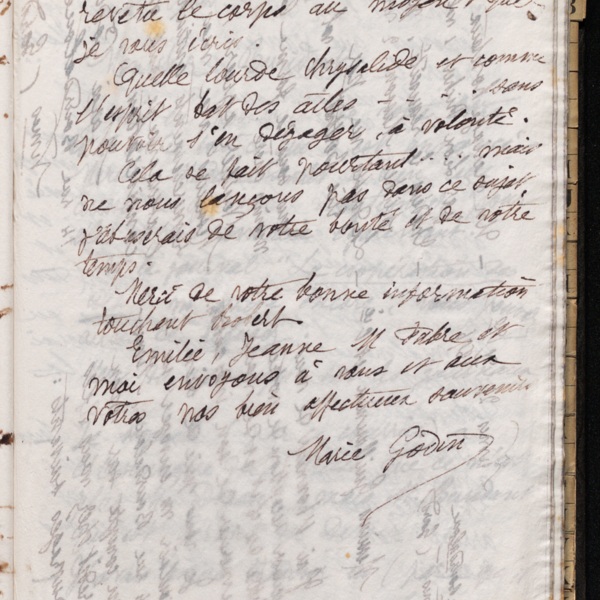 revêtu le corps au moyen que
je vous écris.
Quelle lourde chrysalide et comme
l'esprit bat des ailes - - - . sans
pouvoir s'en dégager, à volonté.
Cela se fait pourtant.... mais
ne nous lançons pas dans ce sujet,
j'abuserais de votre bonté et de votre
temps.
Merci de votre bonne information
touchant
Emilie, Jeanne M Fabre et
moi envoyons à vous et aux
vôtres nos bien affectueux souvenirs
Marie Godin